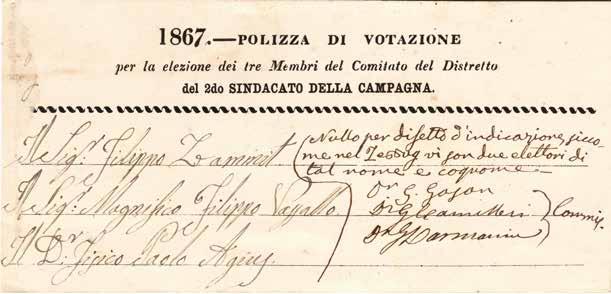 1867.—POLIZZA DI VOTAZIONE
per la elezione dei tre Membri del Comitato del Distretto
del 2do SINDACATO DELLA CAMPAGNA.
Il Sigr. Filippo Zammit (Nullo per difetto d'indicazione, sicco-
me nel Zebbug vi son due elettori di
tal nome e cognome.—
Il Sigr. Magnifico Filippo Vassallo
Dr
Dr
Dr
Commis.
Il Dr. Fisico Paolo Agius